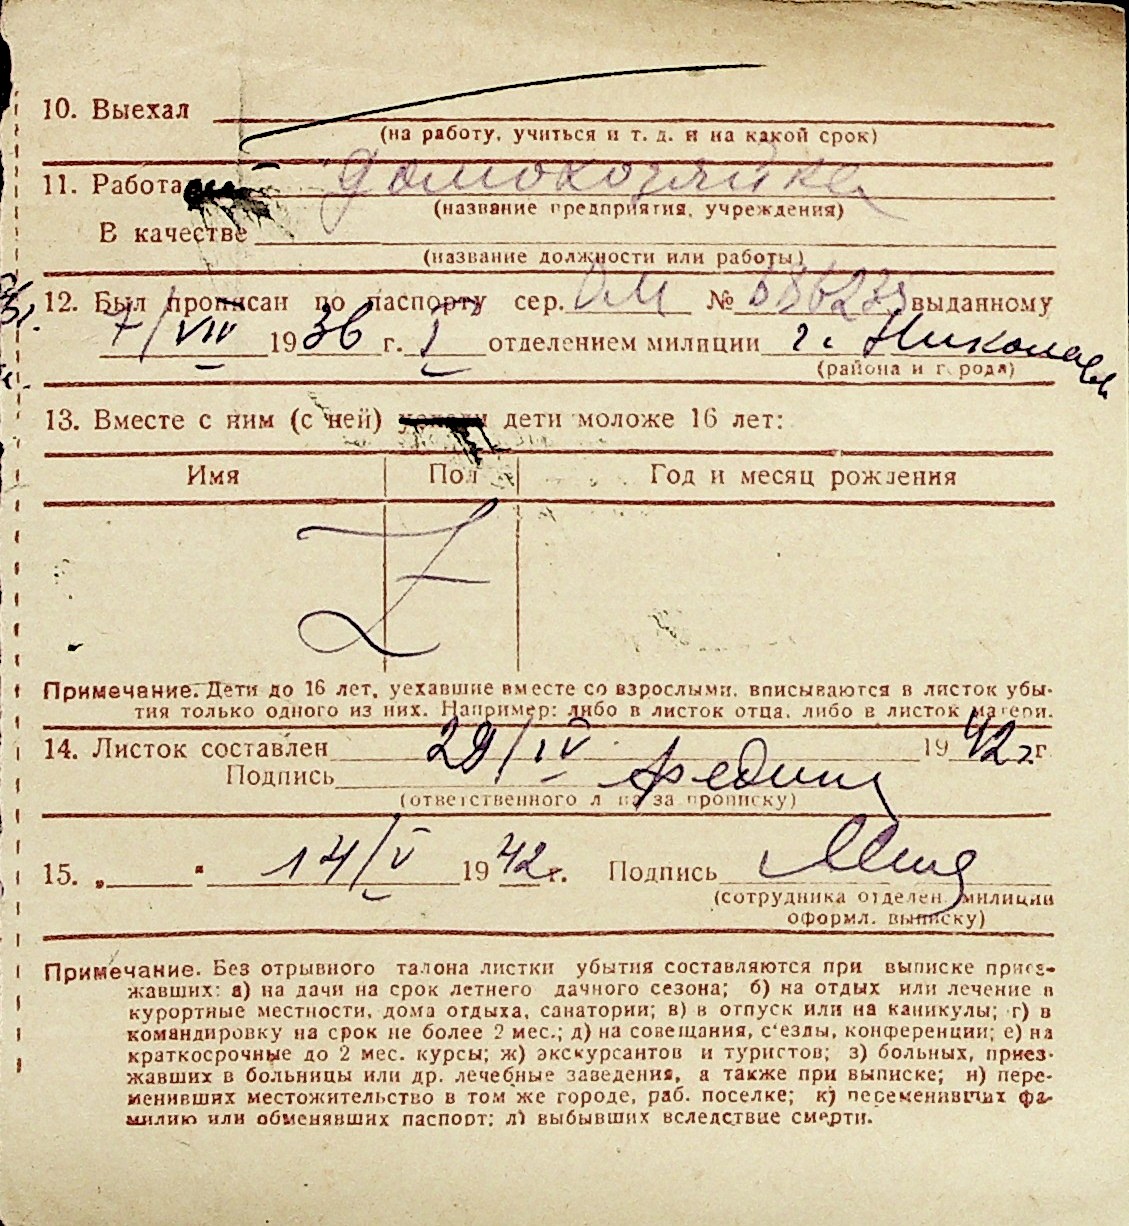 10. Выехал
(на работу, учиться и т. д. и на какой срок)
11. Работа домохозяйка
(название предприятия, учреждения)
В качестве
(название должности или работы)
12. Был прописан по паспорту сер. ОМ № 686235 выданному
7/VIII 1936 г. I отделением милиции г. Николаев
(района и города)
13. Вместе с ним (с ней) дети моложе 16 лет:
Имя Пол Год и месяц рождения
Z
Примечание. Дети до 16 лет, уехавшие вместе со взрослыми, вписываются в листок убы-
тия только одного из них. Например: либо в листок отца, либо в листок матери.
14. Листок составлен 29/IV 1942 г. г.
Подпись
(ответственного лица за прописку)
15. „ " 14/V 1942 г. Подпись
(сотрудника отделен. милиции
оформл. выписку)
Примечание. Без отрывного талона листки убытия составляются при выписке приез-
жавших: а) на дачи на срок летнего дачного сезона; б) на отдых или лечение в
курортные местности, дома отдыха, санатории; в) в отпуск или на каникулы; г) в
командировку на срок не более 2 мес.; д) на совещания, с'езды, конференции; е) на
краткосрочные до 2 мес. курсы; ж) экскурсантов и туристов; з) больных, приез-
жавших в больницы или др. лечебные заведения, а также при выписке; и) пере-
менивших местожительство в том же городе, раб. поселке; к) переменивших фа-
милию или обменявших паспорт; л) выбывших вследствие смерти.